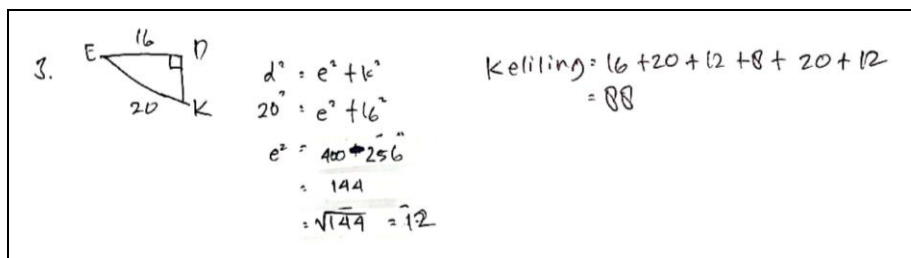 3.
E 16 D
20 K
d² = e² + k²
20² = e² + 16²
e² = 400 - 256
= 144
= √144 = 12
Keliling = 16 + 20 + 12 + 8 + 20 + 12
= 88